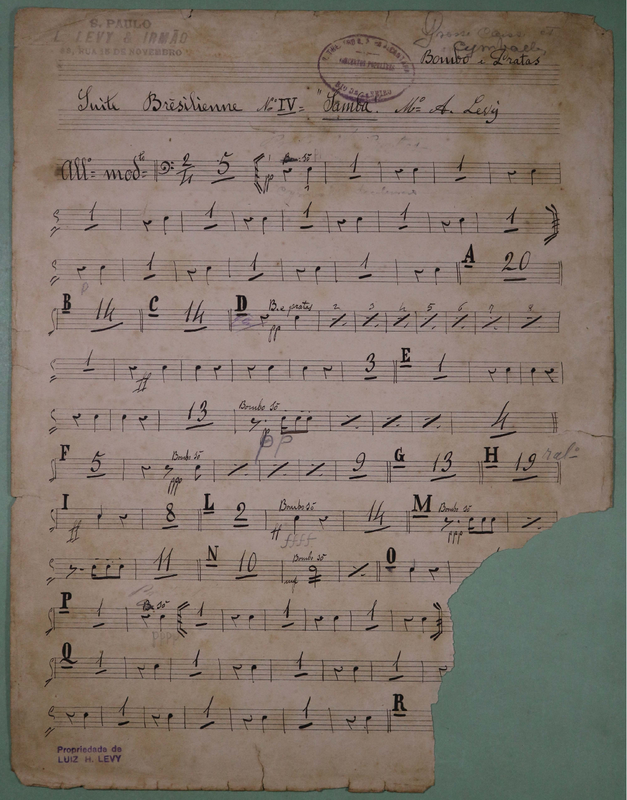 S. PAULO
L. LEVY & IRMÃO
Bombo e Pratas
Suite Brèsilienne Nº IV = "Samba. Mº A. Levy
Allº modto 2/4 5 pp 1 1 1
1 1 1 1 1
1 1 1 A 20
B 14 C 14 D B. e pratas pp 2 3 4 5 6 7 8
1 ff 3 E 1
13 Bombo só pp 4
F 5 Bombo só ppp 9 G 13 H 19
I ff 8 L 2 Bombo só ff ffff 14 M Bombo só ppp
11 N 10 Bombo só mf O
P 1 Bo. só 1 1 1
Q 1 1 1 1
1 1 1 R
Propriedade de
LUIZ H. LEVY